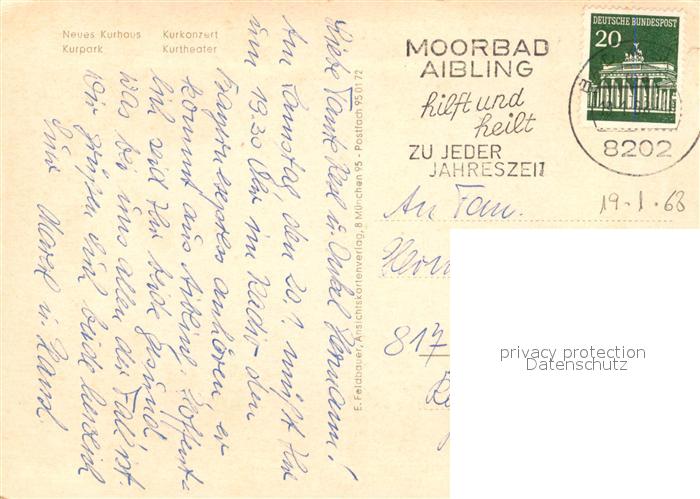 Neues Kurhaus Kurkonzert
Kurpark Kurtheater
MOORBAD
AIBLING
hilft und
heilt
ZU JEDER
JAHRESZEIT
DEUTSCHE BUNDESPOST
20
8202
19.1.68
E. Feldbauer, Ansichtskartenverlag, 8 München 95 - Postfach 95 01 72
Liebe Tante Resl u. Onkel Hermann!
Am Samstag den 20.1. müßt Ihr
um 19.30 Uhr im Radio den
anhören, er
kommt aus Aibling. Hoffent-
lich seid Ihr beide gesund
was bei uns allen der Fall ist.
Wir grüßen Euch beide herzlich
Eure u. Hansl
An Fam.
817
privacy protection
Datenschutz